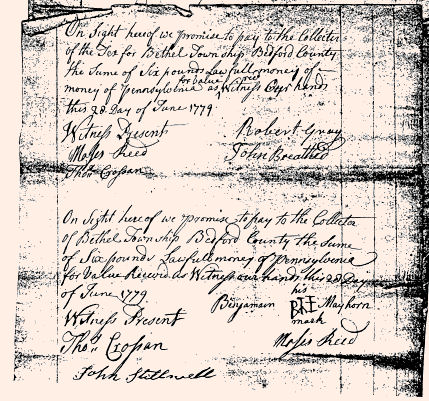 On Sight hereof we promise to pay to the Collector
of the Tax for Bethel Township Bedford County
the Sume of Six pounds Lawfull money of
for Value Reced
money of Pennsylvania as Witness Our hands
this 28 Day of June 1779
Witness Present Robert Gray
Moses Reed John Breathed
Thos Crossan
On Sight hereof we promise to pay to the Collector
of Bethel Township Bedford County the Sume
of Six pounds Lawfull money of Pennsylvania
for Value Receved as Witness our hands this 28 Day
of June 1779 his
Benjamain Mayhorn
mark
Witness Present
Moses Reed
Thos Crossan
John Stillwell